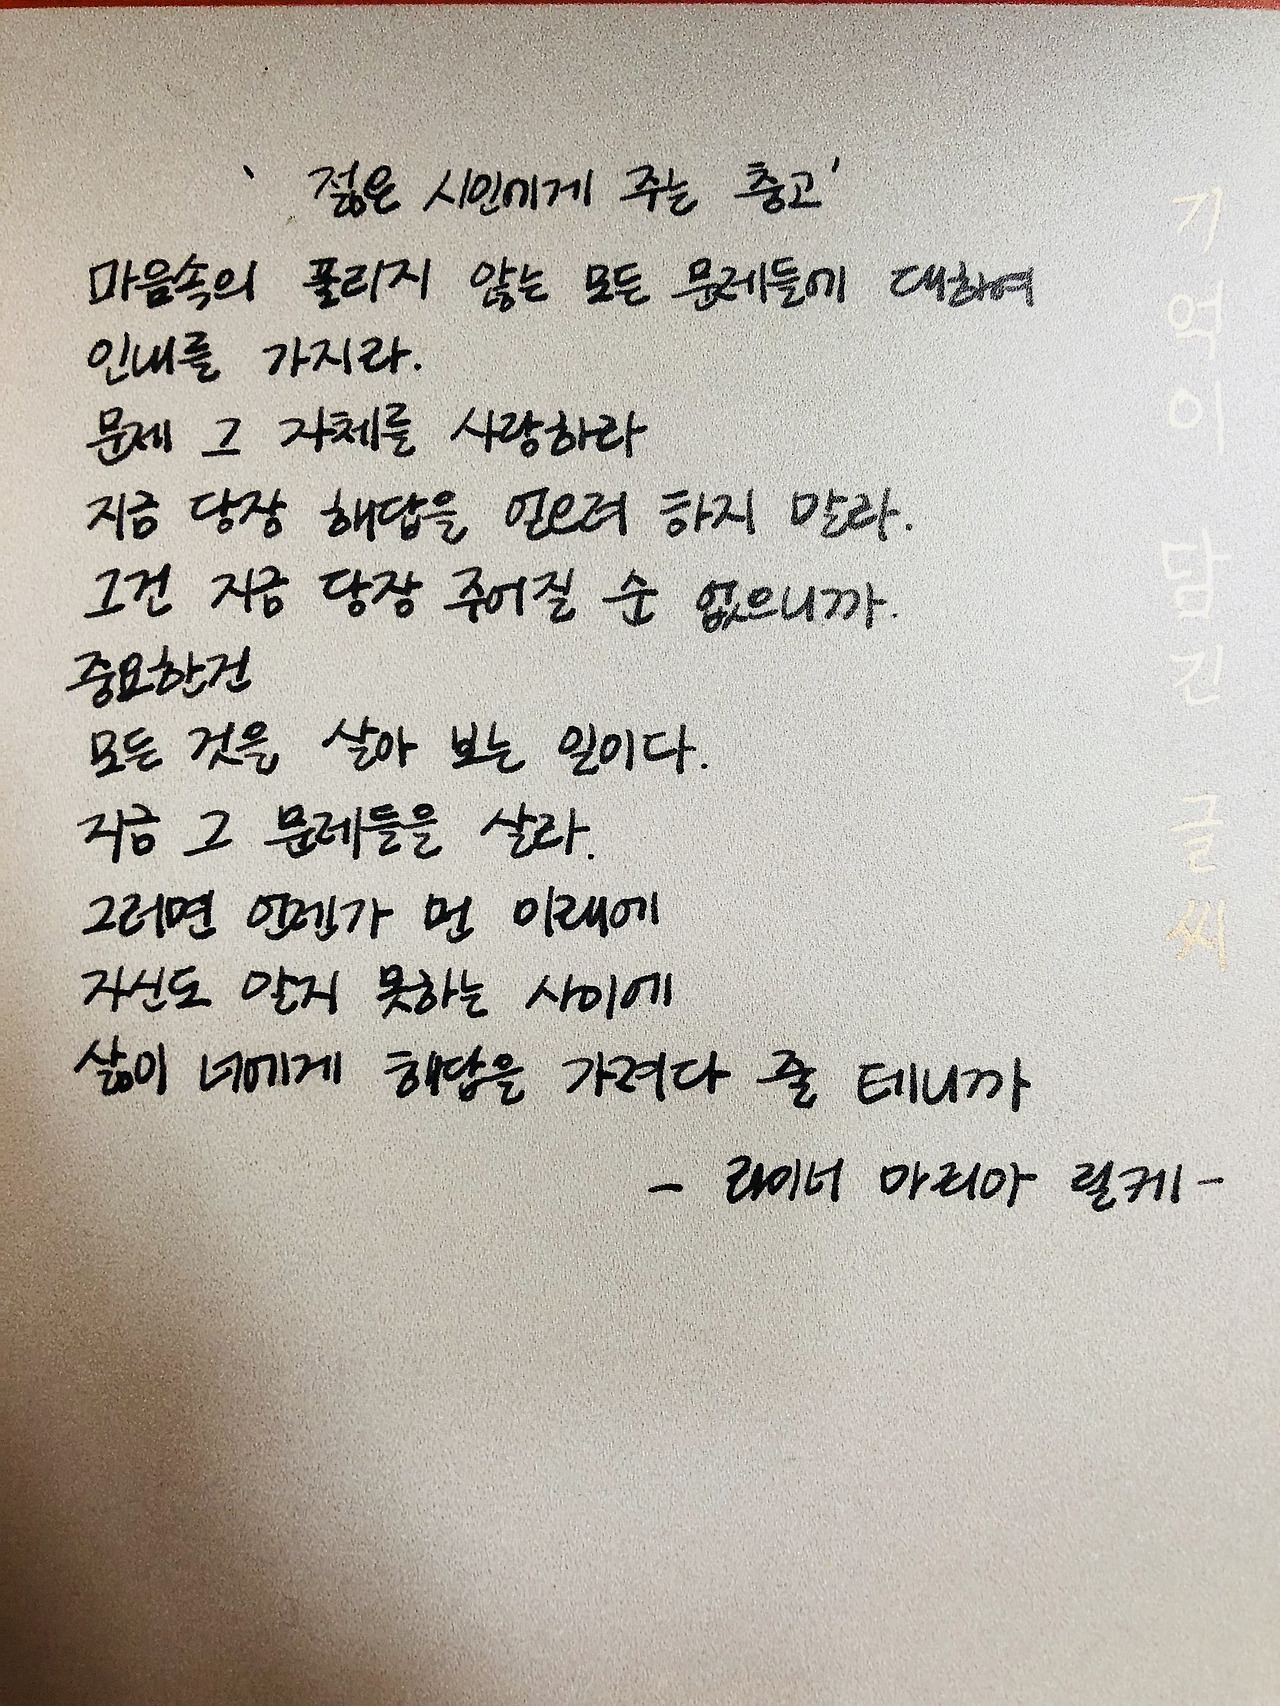 ' 젊은 시인에게 주는 충고'
마음속의 풀리지 않는 모든 문제들에 대하여
인내를 가지라.
문제 그 자체를 사랑하라
지금 당장 해답을 얻으려 하지 말라.
그건 지금 당장 주어질 순 없으니까.
중요한건
모든 것을 살아 보는 일이다.
지금 그 문제들을 살라.
그러면 언젠가 먼 미래에
자신도 알지 못하는 사이에
삶이 너에게 해답을 가져다 줄 테니까
- 라이너 마리아 릴케 -
기억이 담긴 글씨